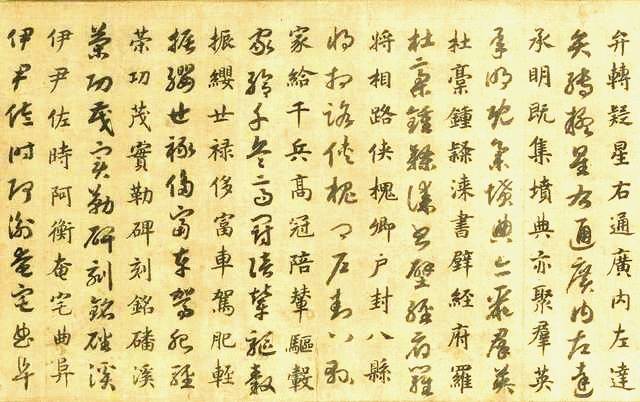 弁轉疑星右通廣内左達
弁轉疑星右通廣内左達
承明既集墳典亦聚羣英
承明既集墳典亦聚羣英
杜稾鍾隸漆書壁經府羅
杜稾鍾隸漆書壁經府羅
將相路俠槐卿户封八縣
將相路俠槐卿户封八縣
家給千兵高冠陪輦驅轂
家給千兵高冠陪輦驅轂
振纓世禄侈富車駕肥輕
振纓世禄侈富車駕肥輕
策功茂實勒碑刻銘磻溪
策功茂實勒碑刻銘磻溪
伊尹佐時阿衡奄宅曲阜
伊尹佐時阿衡奄宅曲阜